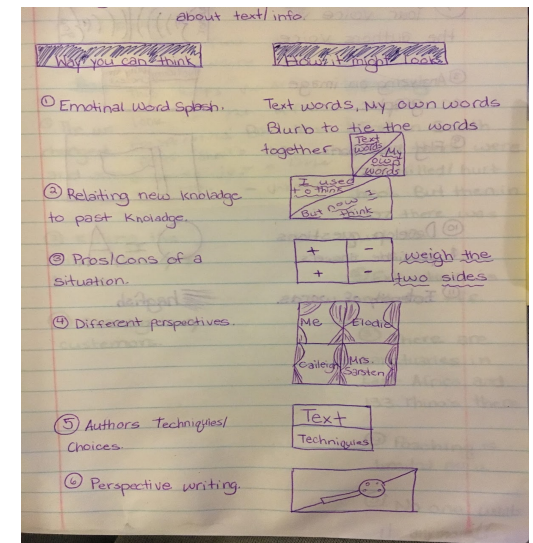 about text/info.
Way you can think
How it might look
① Emotinal Word Splash.
Text words, My own words
Blurb to tie the words
together
Text words
My own words
② Relaiting new knoladge
to past knoladge.
I used
to think
But now I
think
③ Pros/Cons of a
situation.
+ -
+ -
weigh the
two sides
④ Different perspectives.
Me Elodie
Caileigh Mrs. Sarsten
⑤ Authors Techniqules/
Choices.
Text
Techniqules
⑥ Perspective writing.